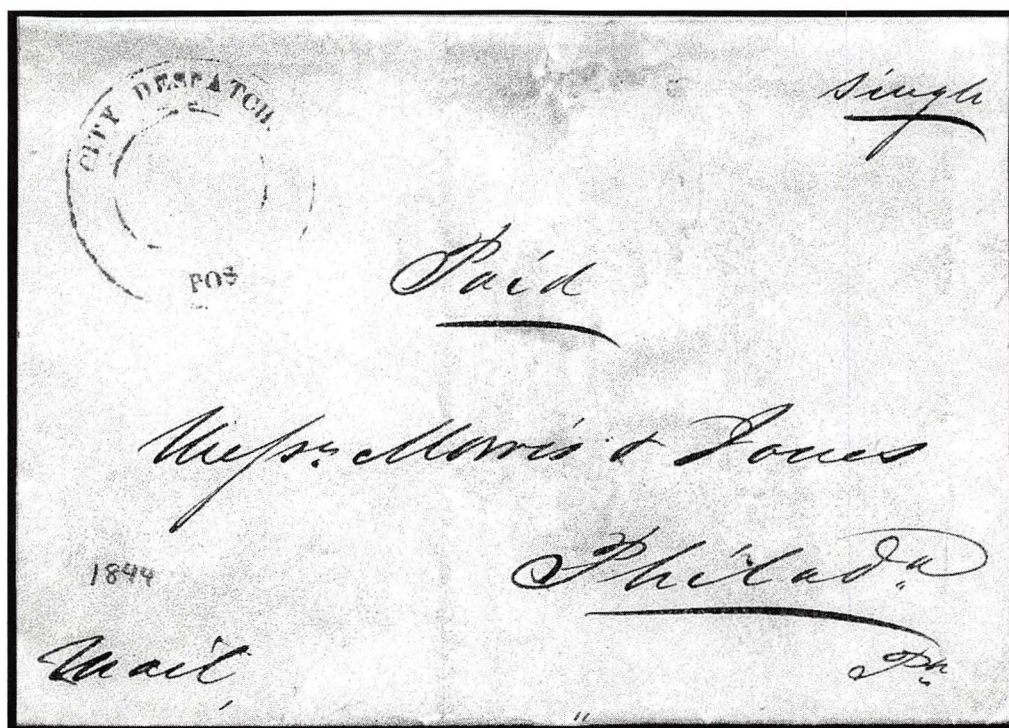 CITY DESPATCH.
POS
single
Paid
Messrs. Morris & Jones
Philada
Pa
1844
Mail,